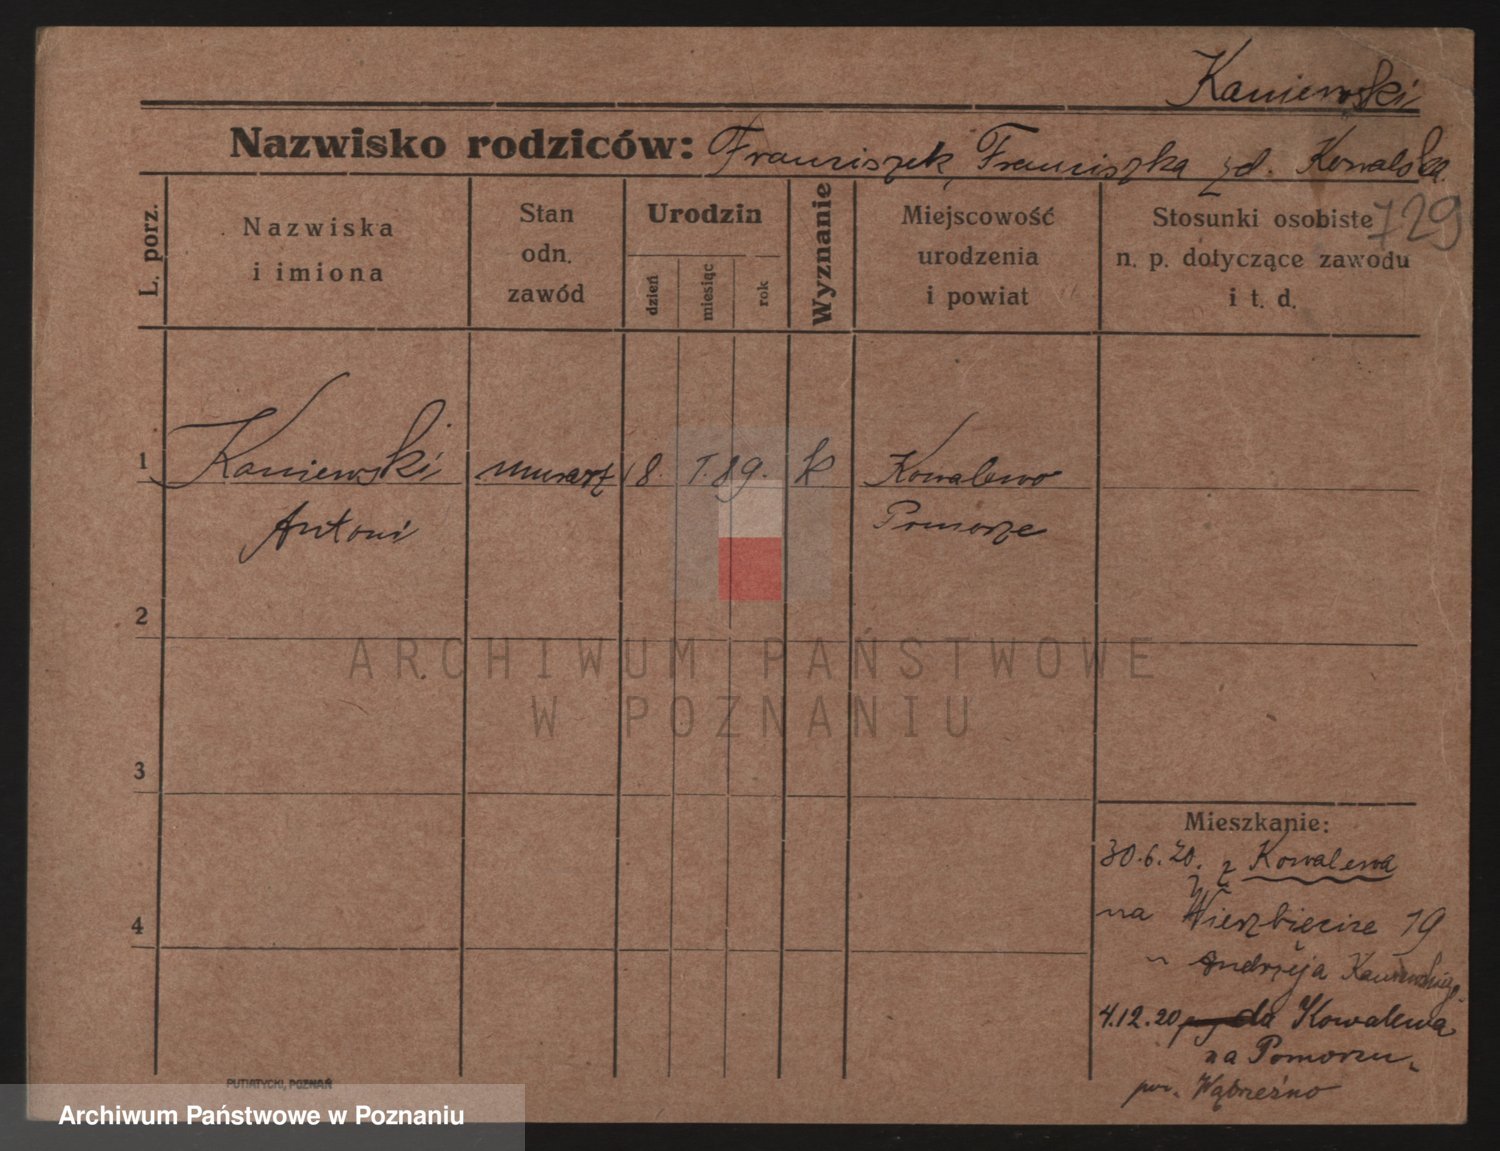 Kaniewski
Nazwisko rodziców: Franciszek, Franciszka zd. Kowalska.
729
L. porz.
Nazwiska
i imiona
Stan
odn.
zawód
Urodzin
dzień
miesiąc
rok
Wyznanie
Miejscowość
urodzenia
i powiat
Stosunki osobiste
n. p. dotyczące zawodu
i t. d.
1 Kaniewski murarz 8. 1. 89. k Kowalewo
Antoni Pomorze
2
ARCHIWUM PAŃSTWOWE
W POZNANIU
3
4
Mieszkanie:
30.6.20. z Kowalewa
na Wierzbięcice 19
u Andrzeja Kaniewskiego
4.12.20 do Kowalewa
na Pomorzu
pow. Wąbrzeźno
PUTIATYCKI, POZNAŃ
Archiwum Państwowe w Poznaniu